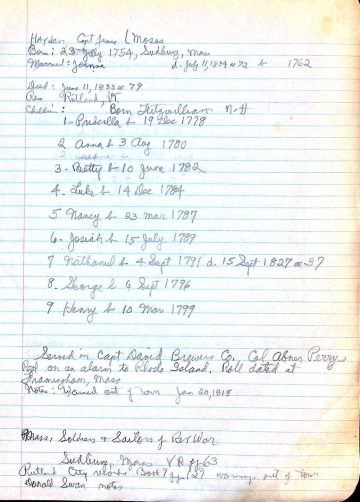 Hayden Capt Jesse (Moses
Born: 23 July 1754, Sudbury, Mass
Married: Joanna d. July 11, 1834 ae 72 b 1762
Died: June 11, 1833 ae 79
Res Rutland, Vt
Children: Born Fitzwilliam N-H
1- Priscilla b 19 Dec 1778
2 Anna b 3 Aug 1780
3- Betty b 10 June 1782
4- Luke b 14 Dec 1784
5 Nancy b 23 Mar 1787
6- Josiah b 15 July 1789
7 Nathaniel b 4 Sept 1791 d. 15 Sept 1827 ae 37
8. George b 6 Sept 1796
9 Henry b 10 Mar 1799
Served in Capt David Brewers Co. Col Abner Perry
Rgt. on an alarm to Rhode Island, Roll dated at
Framingham, Mass
Notes: Warned out of town Jan 20, 1815
Mass, Soldiers & Sailors of Rev War
Sudbury, Mass V R pg 63
Rutland City records Book 7 pg 127 warning out of town
Donald Swan notes